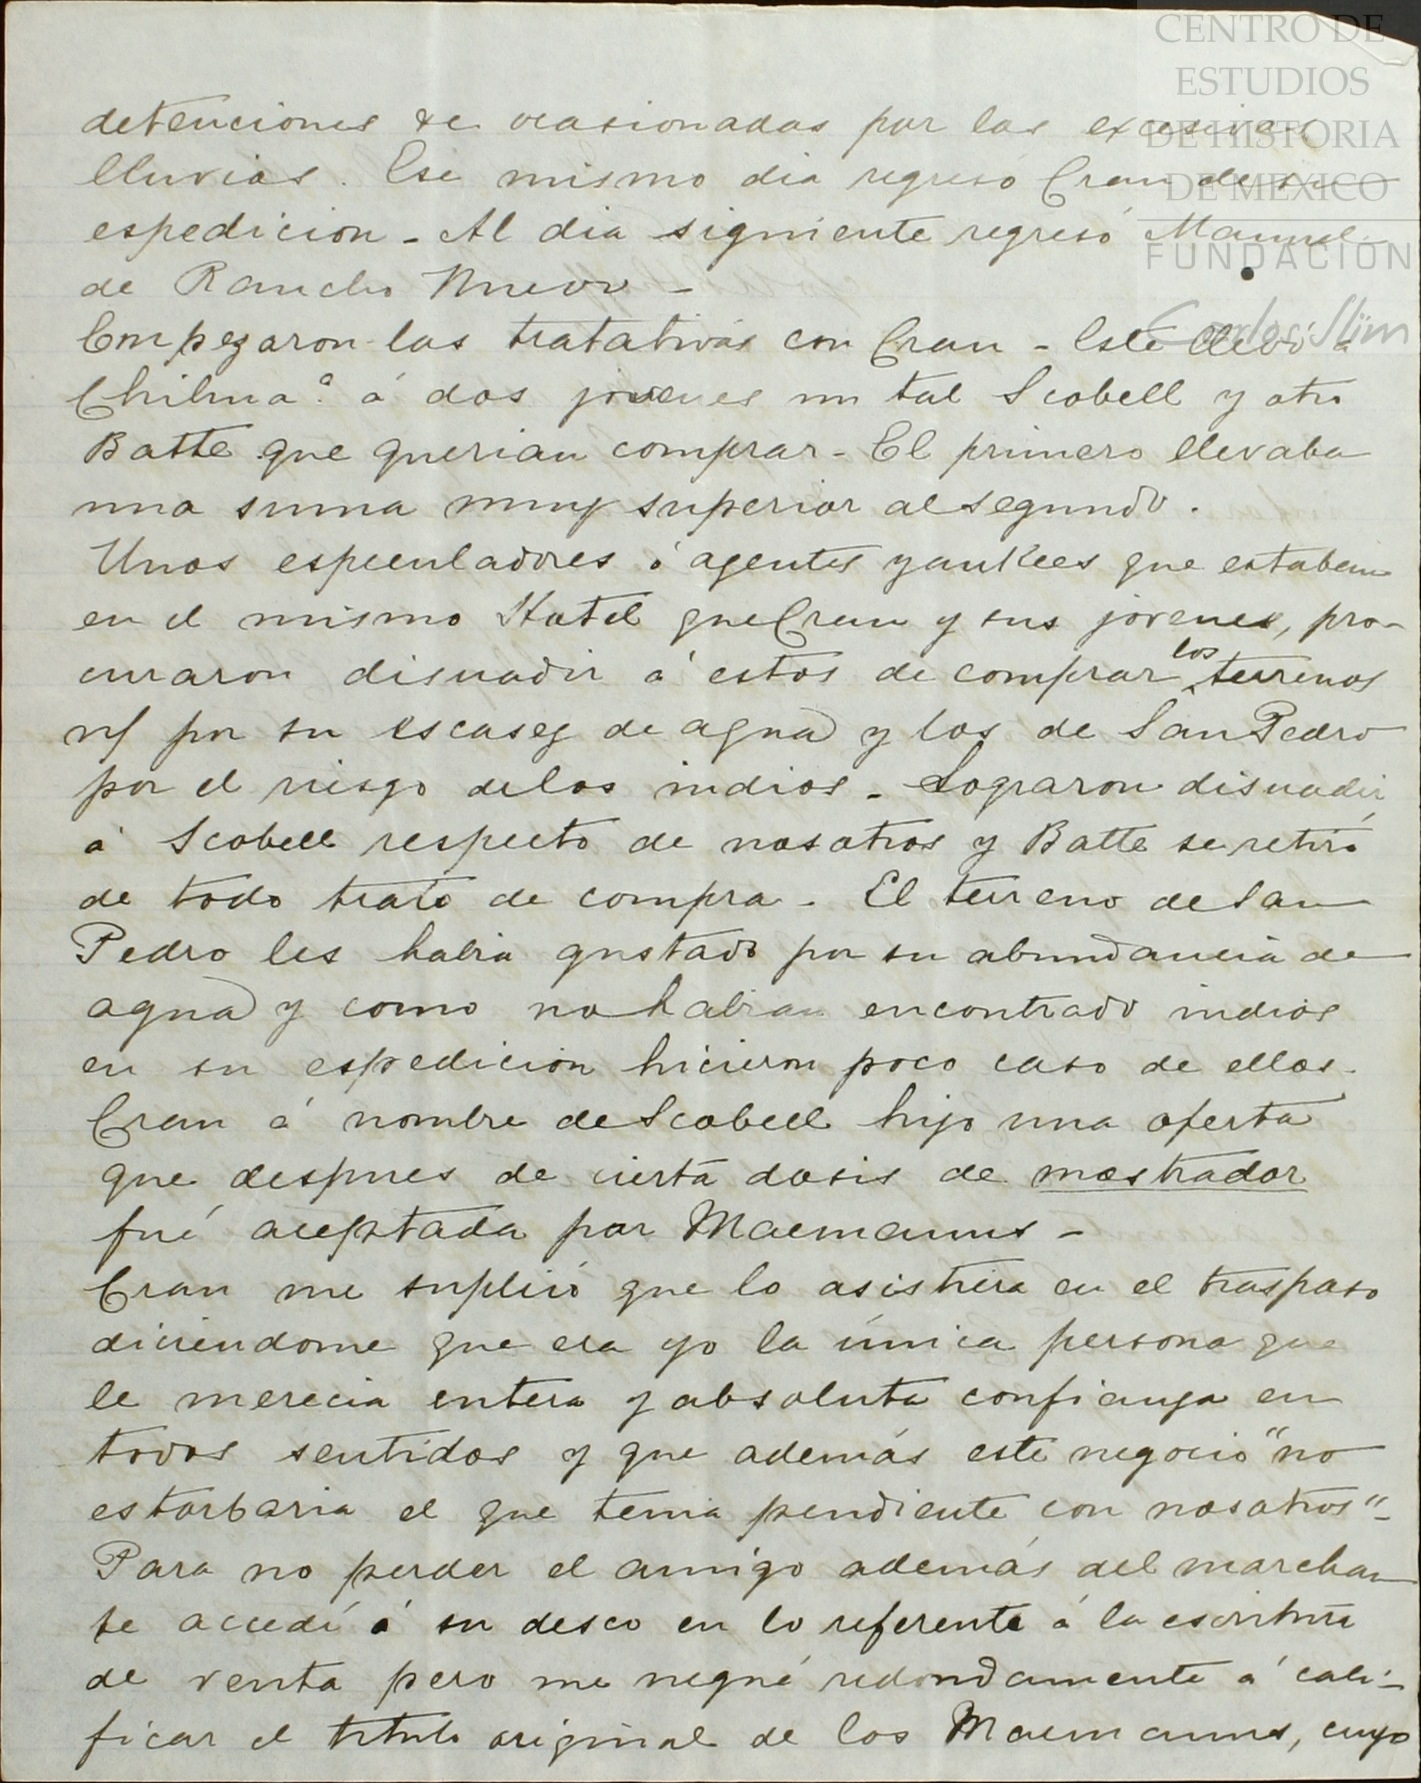 CENTRO DE
ESTUDIOS
DE HISTORIA
DE MEXICO
FUNDACION
Carlos Slim
detenciones &c ocasionadas por las excesivas
lluvias. Ese mismo dia regresó Cran de su
espedicion - Al dia siguiente regresó Manuel
de Rancho Nuevo -
Empezaron las tratativas con Cran - Este llevó á
Chihuaª á dos jovenes un tal Scobell y otro
Batte que querian comprar - El primero llevaba
una suma muy superior al segundo.
Unos especuladores ó agentes yankees que estaban
en el mismo Hotel que Cran y sus jovenes, pro-
curaron disuadir á estos de comprar los terrenos
por su escasez de agua y los de San Pedro
por el riesgo de los indios - Lograron disuadir
á Scobell respecto de nosotros y Batte se retiró
de todo trato de compra - El terreno de San
Pedro les habia gustado por su abundancia de
agua y como no habian encontrado indios
en su espedicion hicieron poco caso de ellos.
Cran á nombre de Scobell hizo una oferta
que despues de cierta dosis de mostrador
fué aceptada por Macmanus -
Cran me suplicó que lo asistiera en el traspaso
diciendome que era yo la única persona que
le merecia entera y absoluta confianza en
todos sentidos y que además este negocio "no
estorbaria el que tenia pendiente con nosotros" -
Para no perder el amigo además del marchan
te accedí á su deseo en lo referente á la escritura
de venta pero me negué redondamente á cali-
ficar el titulo original de los Macmanus, cuyo